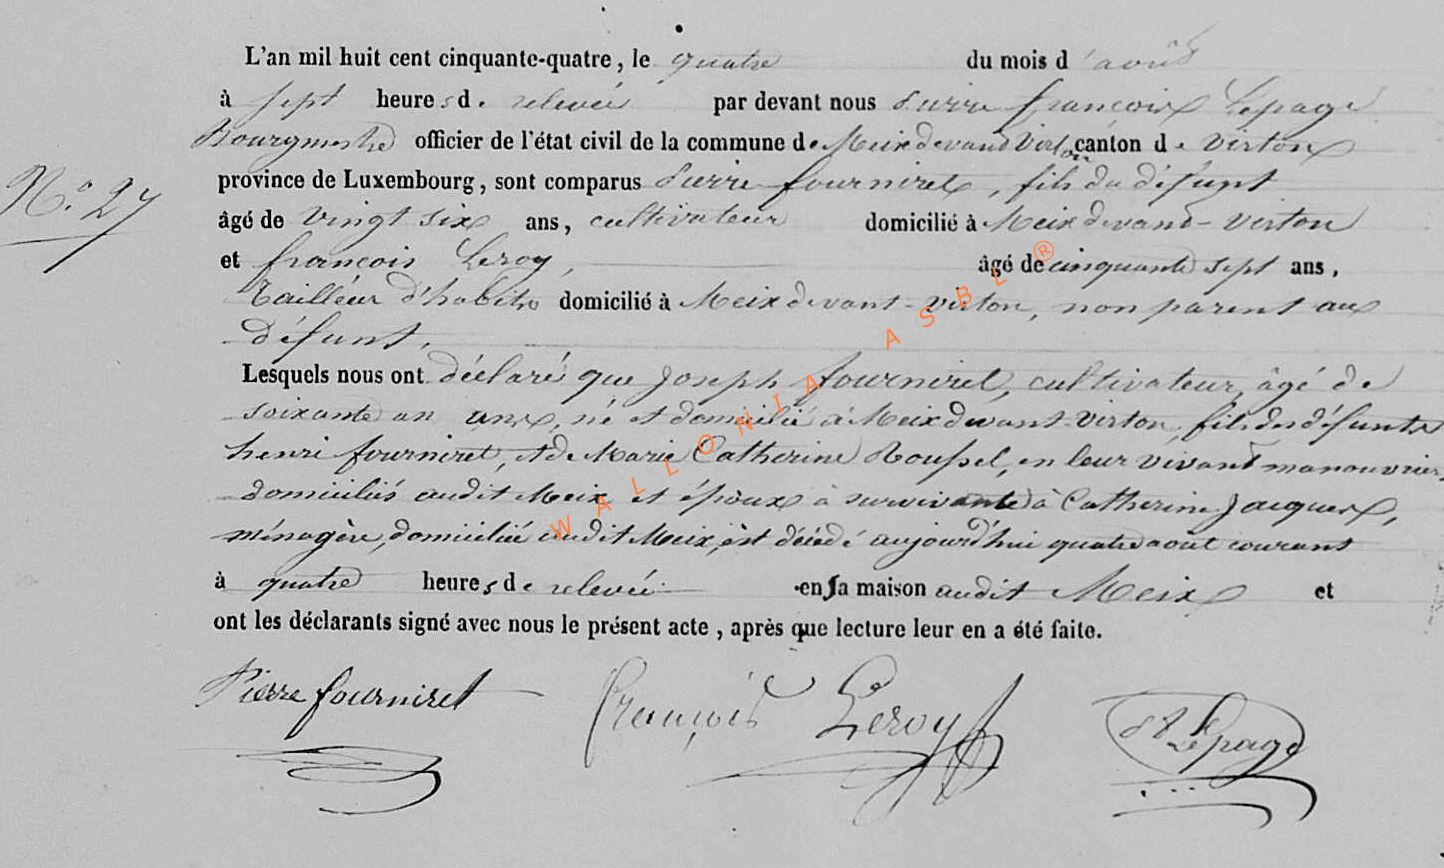 L'an mil huit cent cinquante-quatre, le quatre du mois d'août
à sept heures de relevée par devant nous Pierre françois Lepage
Bourgmestre officier de l'état civil de la commune de Meix devand Virton canton de Virton
N.° 27
province de Luxembourg, sont comparus Pierre fourniret, fils du défunt
âgé de vingt six ans, cultivateur domicilié à Meix devant-virton
et françois Leroy, âgé de cinquante sept ans,
Tailleur d'habits domicilié à Meix devant-virton, non parent au
défunt,
Lesquels nous ont déclaré que Joseph fourniret, cultivateur, âgé de
soixante un ans, né et domicilié à Meix devant-virton, fils des défunts
henri fourniret, et de Marie Catherine Roussel, en leur vivant manouvriers,
domiciliés audit Meix et époux à survivante à Catherine Jacques,
ménagère, domiciliée audit Meix, est décédé aujourd'hui quatre aout courant
à quatre heures de relevée en sa maison audit Meix et
ont les déclarants signé avec nous le présent acte, après que lecture leur en a été faite.
Pierre fourniret françois Leroy Lepage
WALLONIA ASBL ®